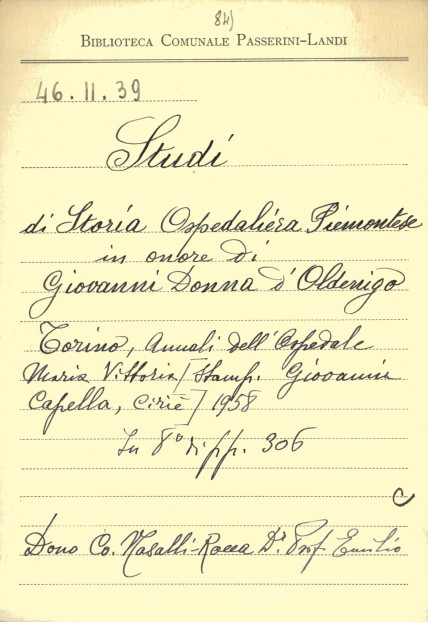 84)
BIBLIOTECA COMUNALE PASSERINI-LANDI
46.II.39
Studi
di Storia Ospedaliéra Piemontese
in onore di
Giovanni Donna d'Oldenigo
Torino, Annali dell'Ospedale
Maria Vittoria [Stamp. Giovanni
Capella, Ciriè] 1958
In 8° di pp. 306
C
Dono Co. Nasalli-Rocca Dr. Prof. Emilio